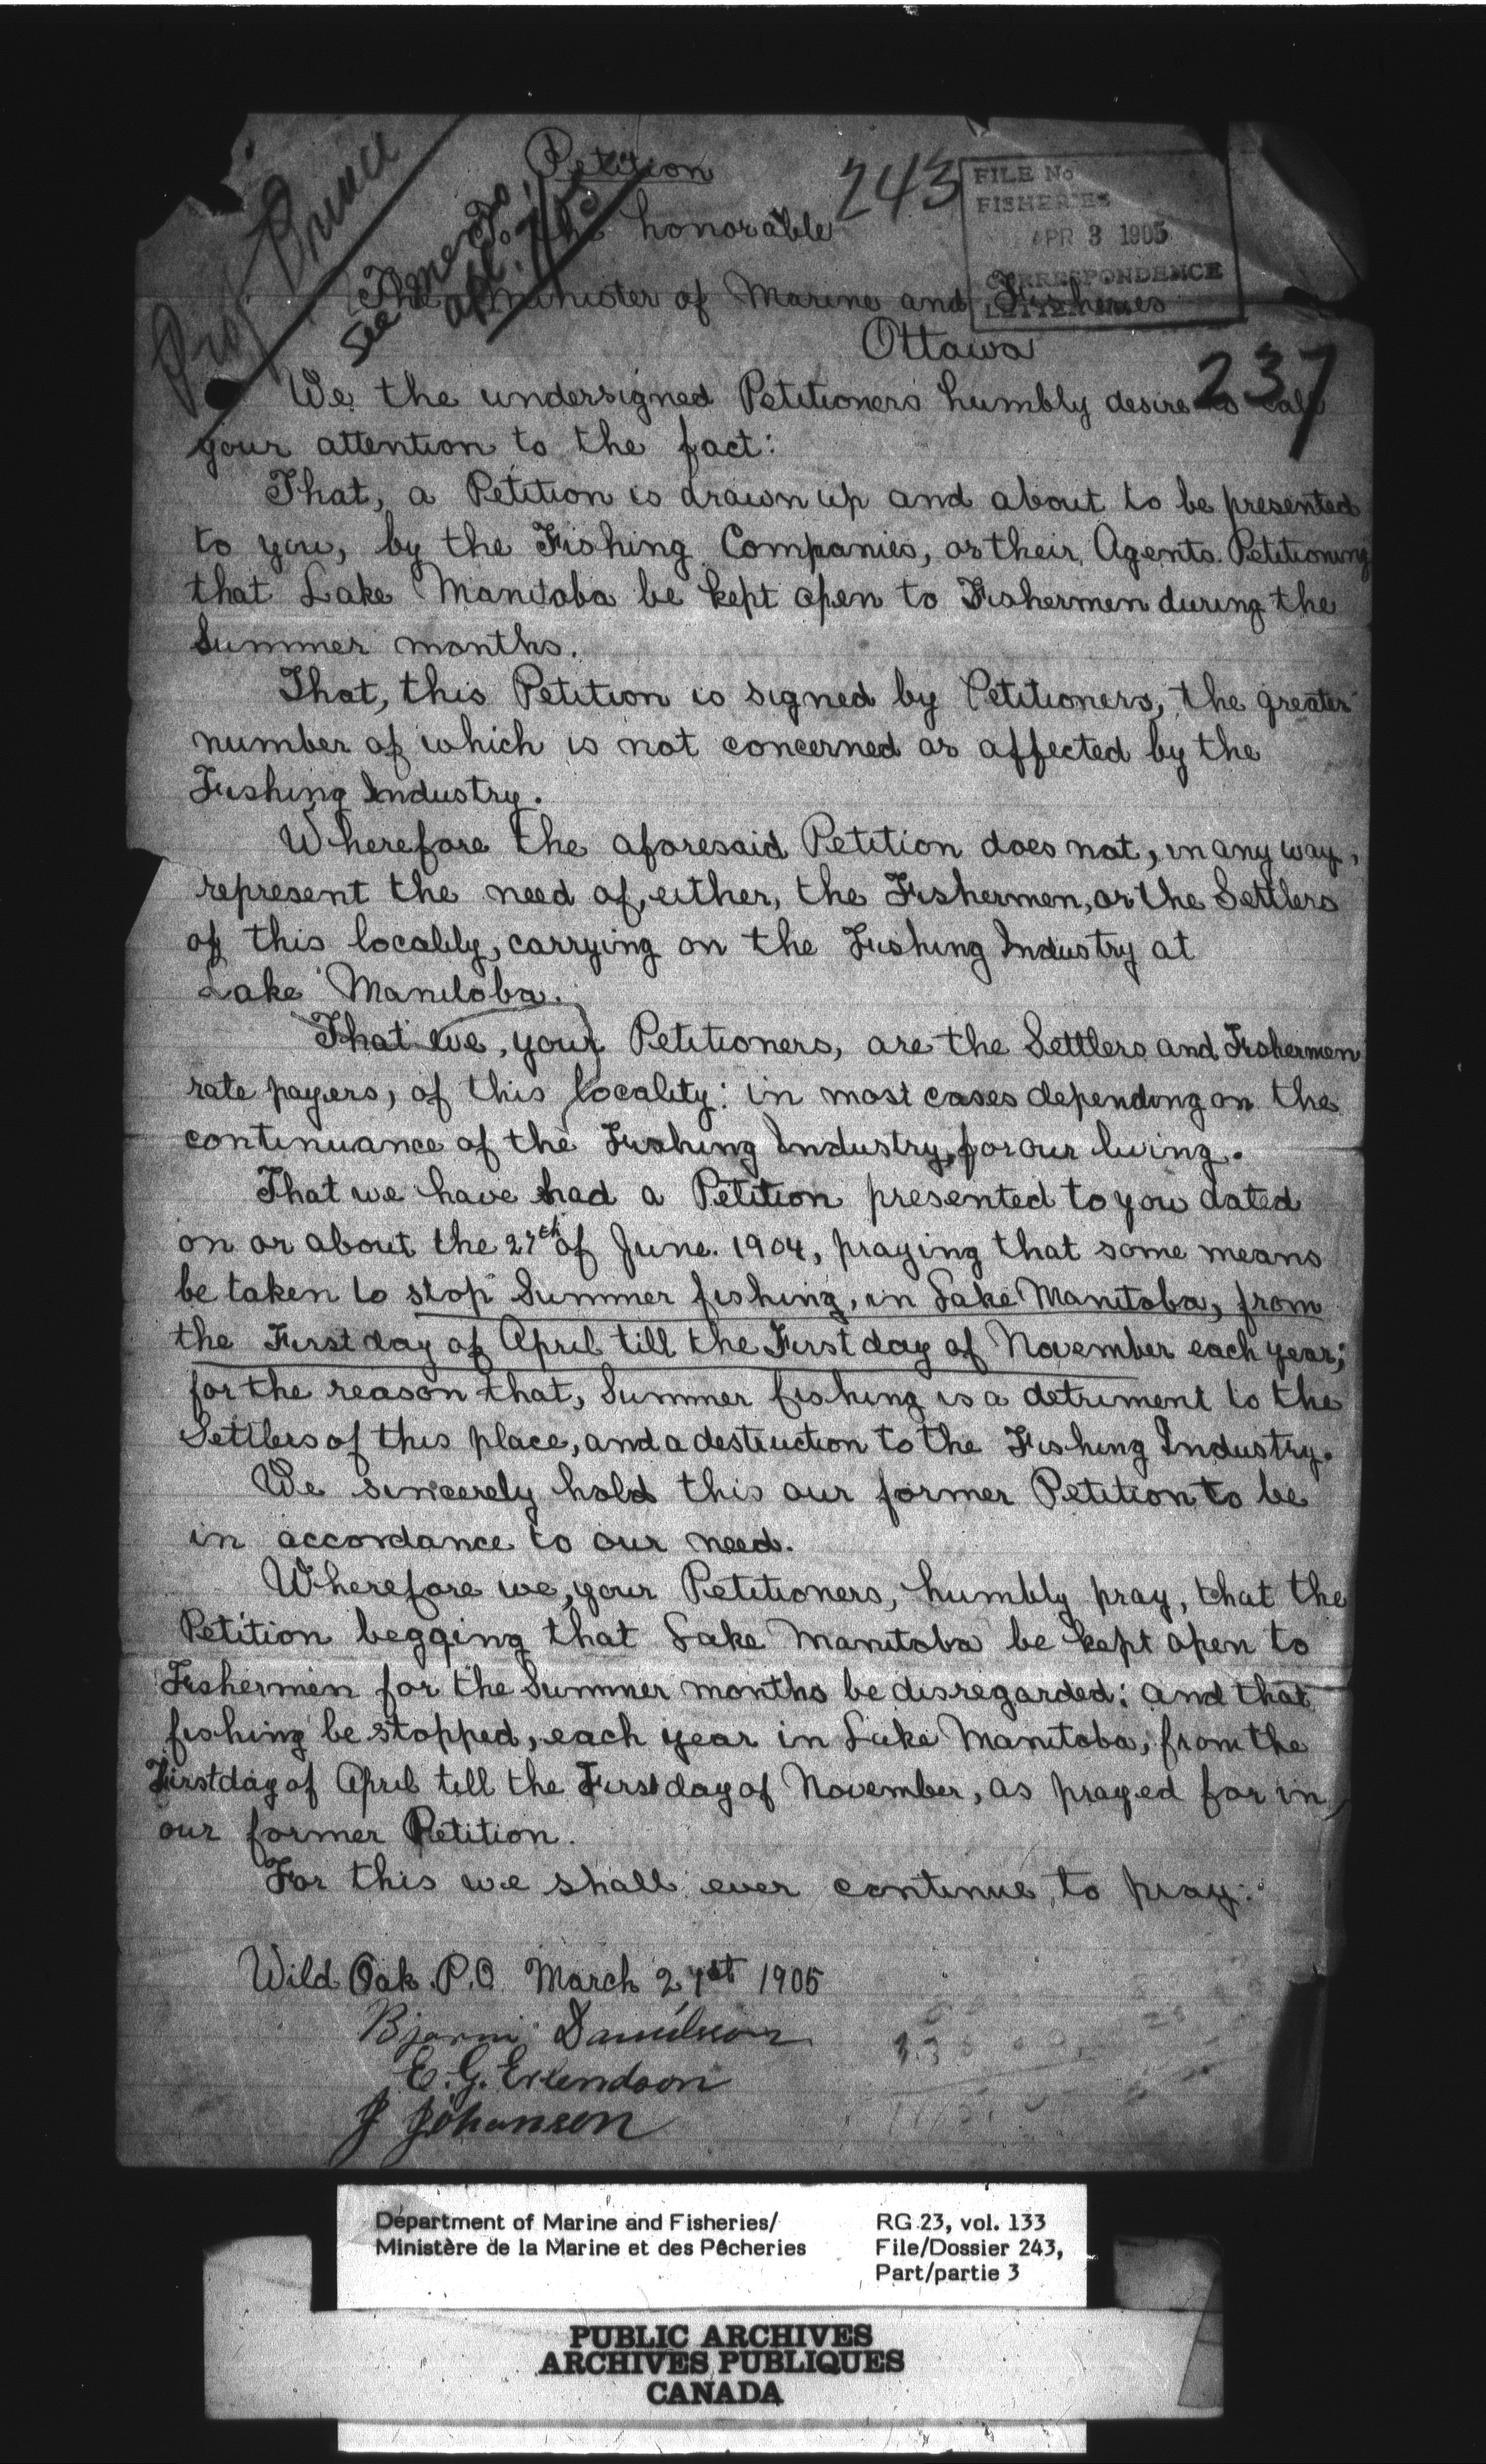 Petition
243
FILE No
FISHERIES
APR 3 1905
CORRESPONDENCE
Prof Prince
See memo To
the honorable
The Minister of Marine and Fisheries
Ottawa
237
We the undersigned Petitioners humbly desire to call
your attention to the fact:
That, a Petition is drawn up and about to be presented
to you, by the Fishing Companies, or their Agents. Petitioning
that Lake Manitoba be kept open to Fishermen during the
Summer months.
That, this Petition is signed by Petitioners, the greater
number of which is not concerned or affected by the
Fishing Industry.
Wherefore the aforesaid Petition does not, in any way,
represent the need of, either, the Fishermen, or the Settlers
of this locality, carrying on the Fishing Industry at
Lake Manitoba.
That we, your Petitioners, are the Settlers and Fishermen
rate payers, of this locality: in most cases depending on the
continuance of the Fishing Industry, for our living.
That we have had a Petition presented to you dated
on or about the 27th of June. 1904, praying that some means
be taken to stop Summer fishing, in Lake Manitoba, from
the First day of April till the First day of November each year;
for the reason that, Summer fishing is a detriment to the
Settlers of this place, and a destruction to the Fishing Industry.
We sincerely hold this our former Petition to be
in accordance to our need.
Wherefore we, your Petitioners, humbly pray, that the
Petition begging that Lake Manitoba be kept open to
Fishermen for the Summer months be disregarded: and that
fishing be stopped, each year in Lake Manitoba, from the
First day of April till the First day of November, as prayed for in
our former Petition.
For this we shall ever continue to pray.
Wild Oak P.O. March 21st 1905
Bjarni Danielsson
E. G. Erlendson
J Johanson
Department of Marine and Fisheries/ RG 23, vol. 133
Ministère de la Marine et des Pêcheries File/Dossier 243,
Part/partie 3
PUBLIC ARCHIVES
ARCHIVES PUBLIQUES
CANADA